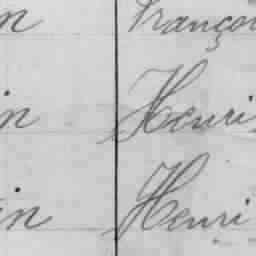 in Françoi
in Henri
in Henri